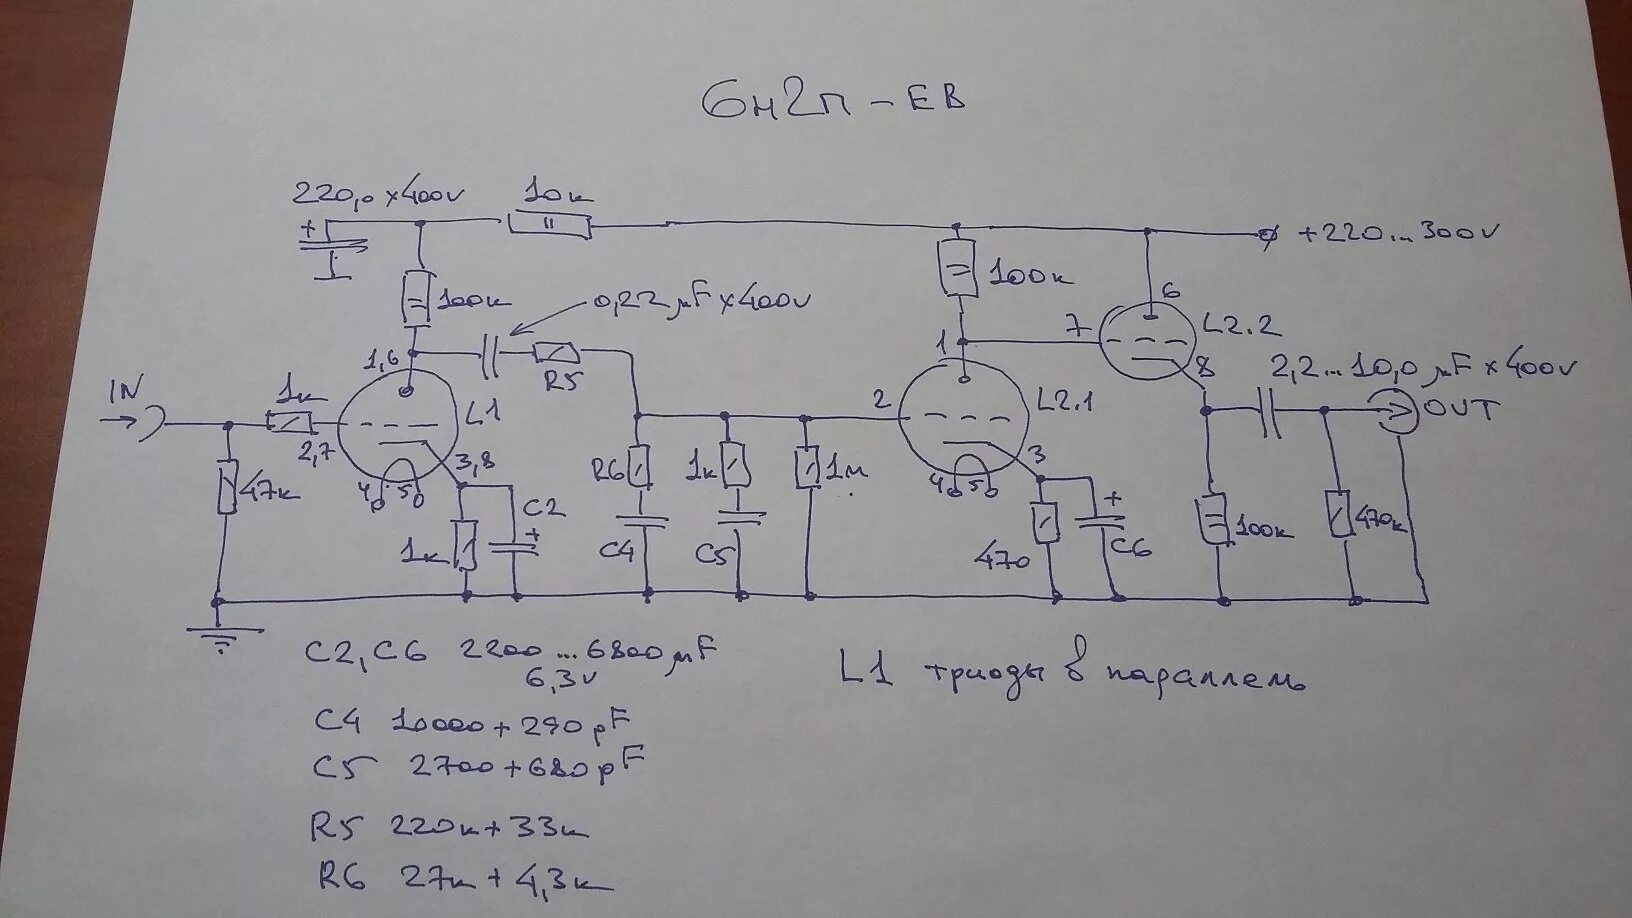 6н2п-ЕВ
220,0 x400v
10к
+
+220...300v
100к
0,22 μF x400v
100к
6
7
L2.2
1
1,6
R5
8
2,2...10,0 μF x400v
IN
1к
L1
2
L2.1
OUT
2,7
3,8
3
47к
4
5
R6
1к
1м
4
5
C2
+
+
1к
C4
C5
470
C6
100к
470к
C2, C6 2200...6800 μF
6,3v
L1 триоды в параллель
C4 10000+290pF
C5 2700+680pF
R5 220к+33к
R6 27к+4,3к